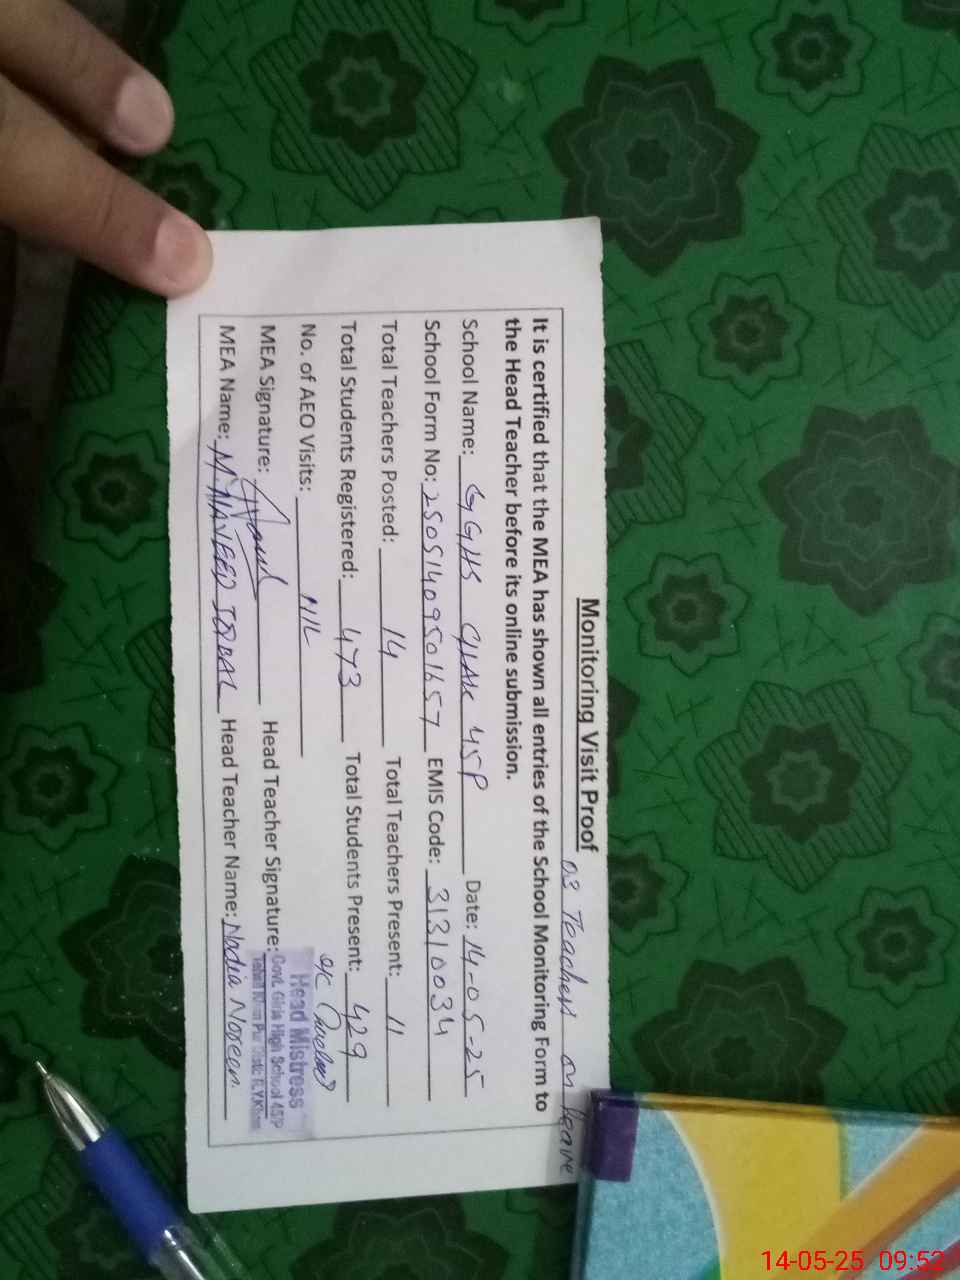 Monitoring Visit Proof
03 Teachers on leave
It is certified that the MEA has shown all entries of the School Monitoring Form to
the Head Teacher before its online submission.
School Name: GGHS CHAK 45P Date: 14-05-25
School Form No: 25051409501657 EMIS Code: 31310034
Total Teachers Posted: 14 Total Teachers Present: 11
Total Students Registered: 473 Total Students Present: 429
No. of AEO Visits: NIL
MEA Signature: Head Teacher Signature:
Head Mistress
Govt. Girls High School 45/P
Tehsil Khan Pur Distt: R.Y.Khan
MEA Name: M. NAVEED IQBAL Head Teacher Name: Nadia Noreen
14-05-25 09:52